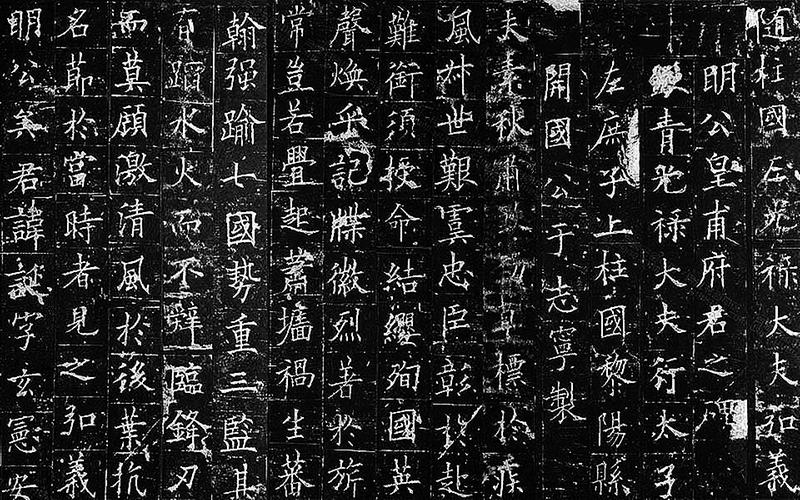 随柱國左光禄大夫弘義
明公皇甫府君之碑
青光禄大夫行太子
左庶子上柱國黎陽縣
開國公于志寧製
夫素秋肅勁草標於疾
風叔世艱虞忠臣彰於赴
難銜須授命結纓殉國英
聲煥乎記牒徽烈著於旂
常豈若舋起蕭墻禍生蕃
翰强踰七國勢重三監其
有蹈水火而不辭臨鋒刃
而莫顧激清風於後葉抗
名節於當時者見之弘義
明公矣君諱誕字玄憲安